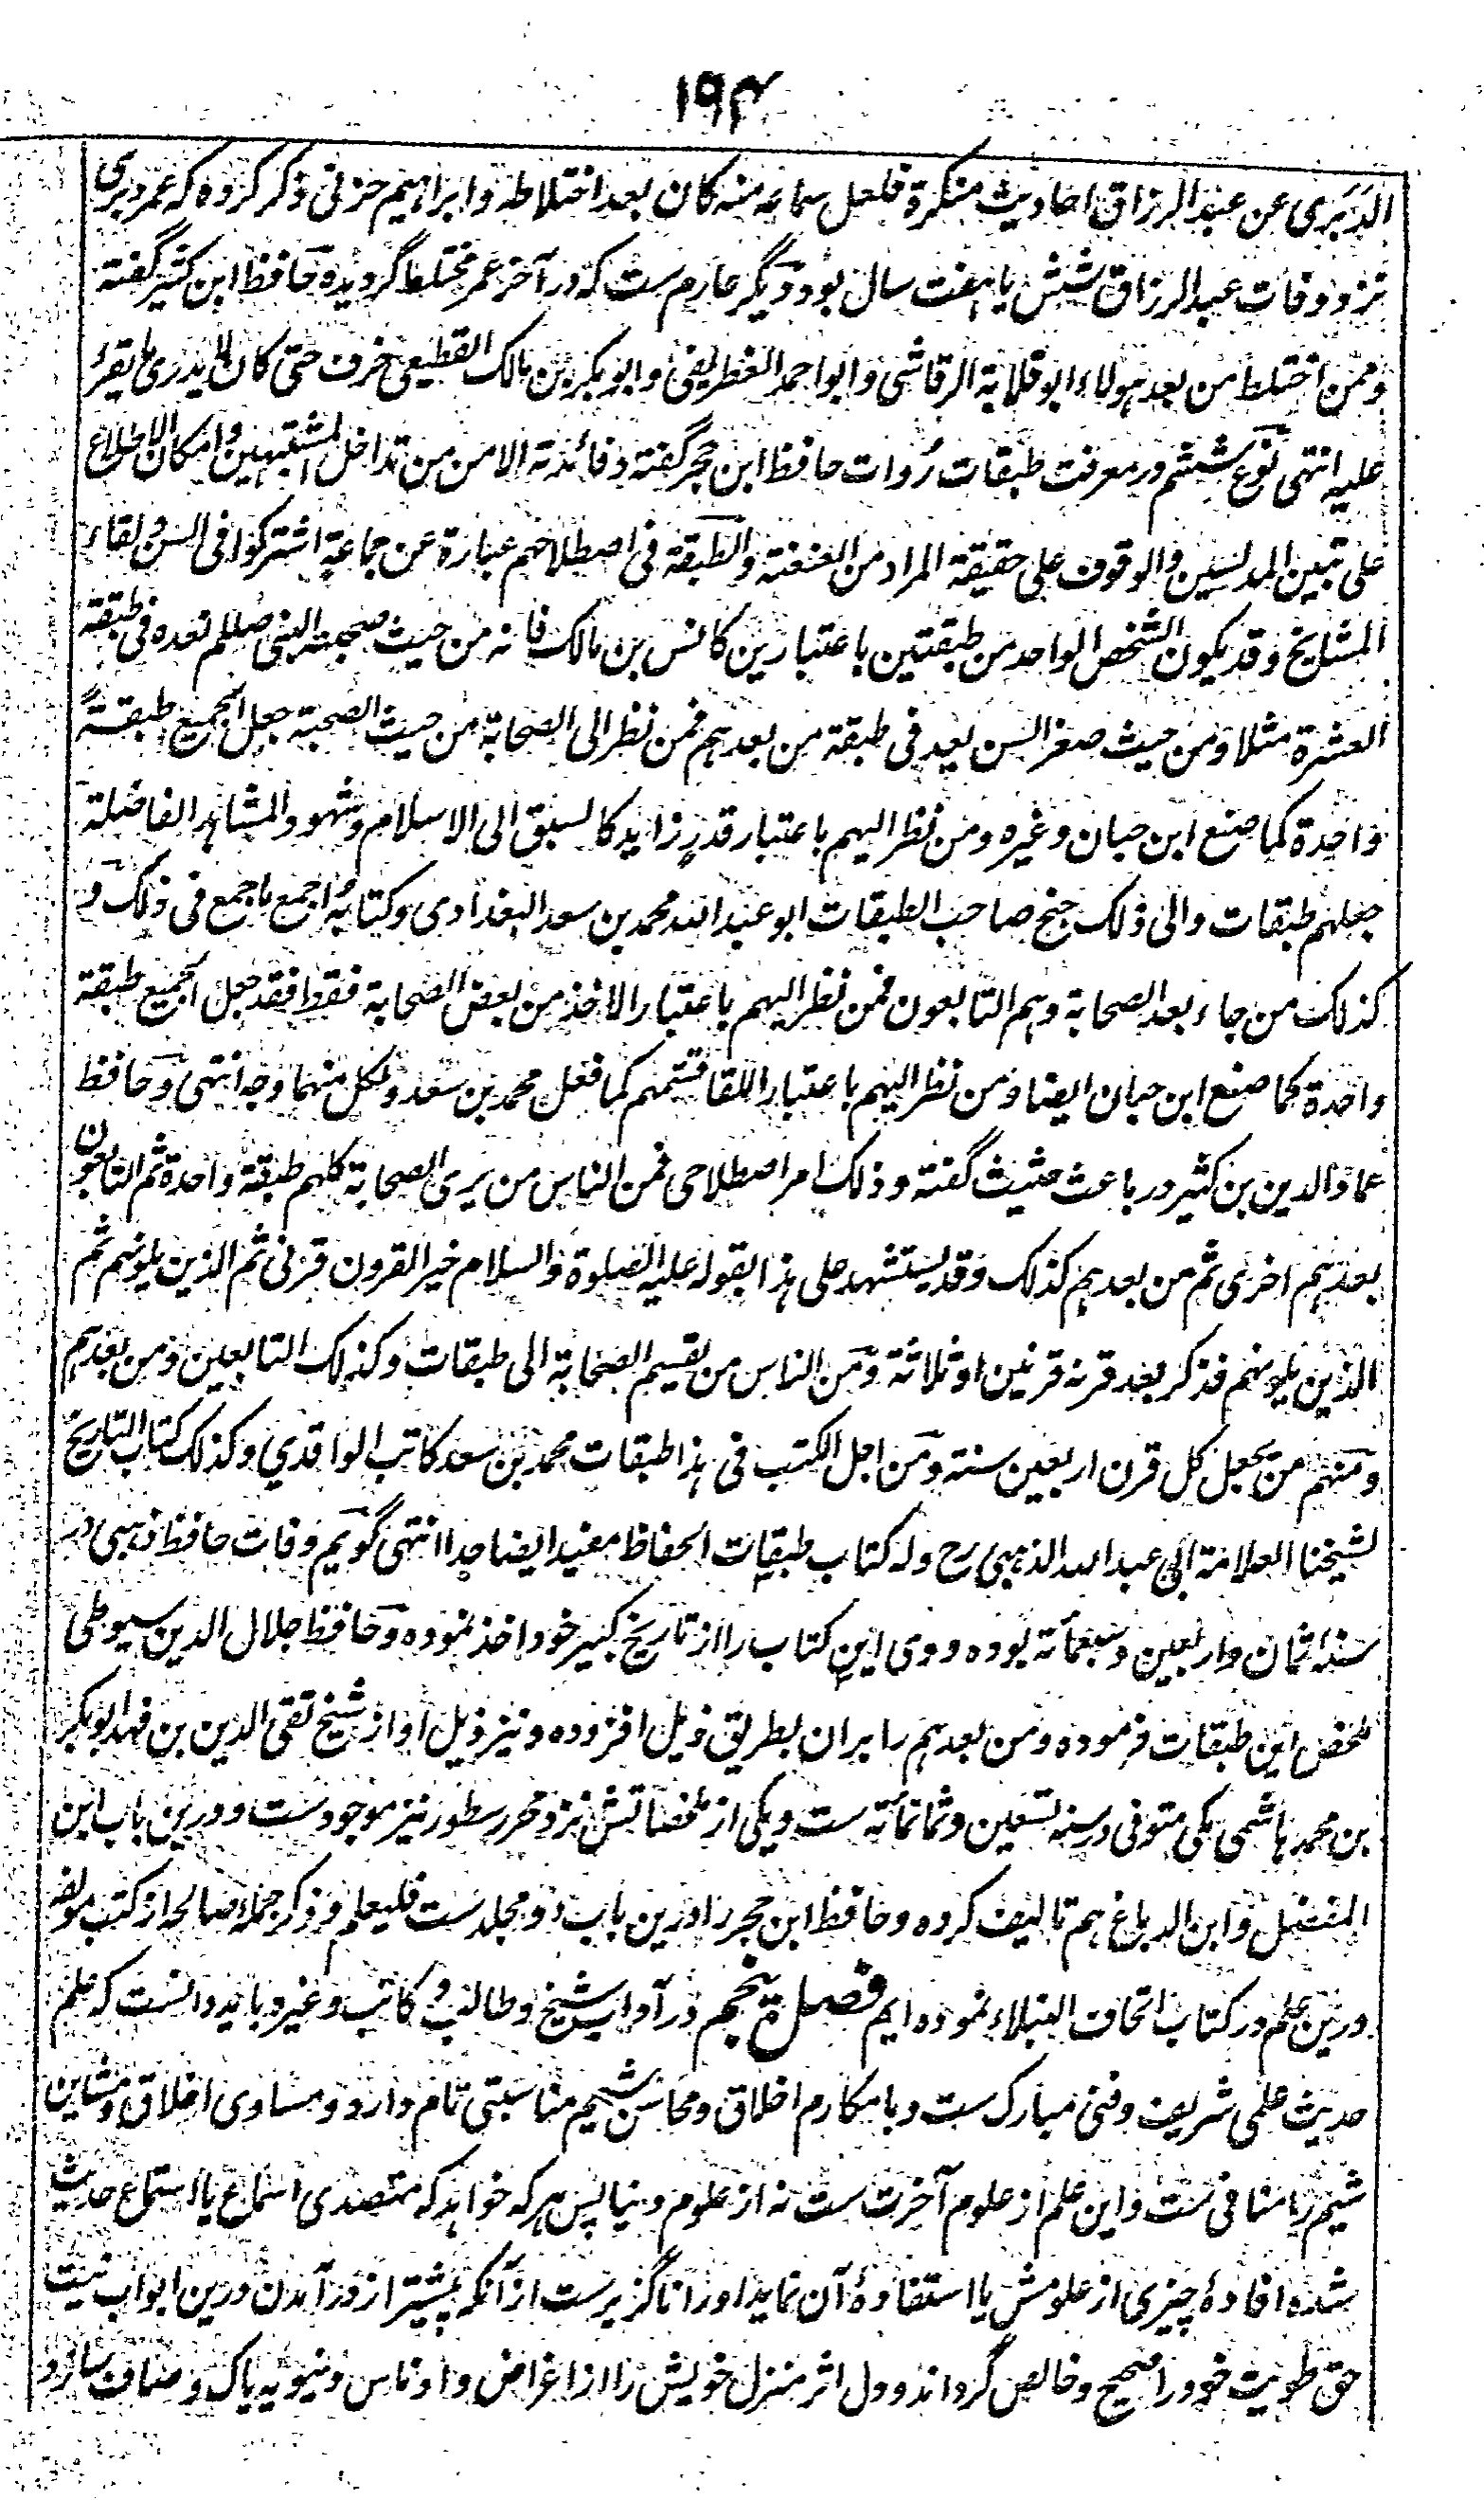 ۱۹۴
الدَبَری عن عبد الرزاق احادیث منکرة فلعل سماعه منه کان بعد اختلاطه و ابراهیم حزنی ذکر کرده که عمر دبری
نزد وفات عبد الرزاق شش یا هفت سال بود و دیگر عارم ست که در آخر عمر مختلط گردیده حافظ ابن کثیر گفته
وممن اختلط من بعد هولاء ابو قلابة الرقاشی و ابو احمد الغطریفی و ابو بکر بن مالک القطیعی خرف حتی کان لا یدری ما یقرأ
علیه انتهی نوع ششم در معرفت طبقات رُوات حافظ ابن حجر گفته و فائدته الامن من تداخل المشتبهین و امکان الاطلاع
علی تبیین المدلسین والوقوف علی حقیقة المراد من العنعنة والطبقة فی اصطلاحهم عبارة عن جماعة اشترکوا فی السن ولقاء
المشایخ وقد یکون الشخص الواحد من طبقتین باعتبارین کانس بن مالک فانه من حیث صحبته النبی صللم یعده فی طبقة
العشرة مثلا ومن حیث صغر السن یعد فی طبقة من بعدهم فمن نظر الی الصحابة من حیث الصحبة جعل الجمیع طبقةً
واحدة کما صنع ابن حبان وغیره ومن نظر الیهم باعتبار قدرٍ زاید کالسبق الی الاسلام وشهود المشاهد الفاضلة
جعلهم طبقات والی ذلک جنح صاحب الطبقات ابو عبد الله محمد بن سعد البغدادی وکتابهُ اجمع ما جمع فی ذلک و
کذلک من جاء بعد الصحابة وهم التابعون فمن نظر الیهم باعتبار الاخذ من بعض الصحابة فقط فقد جعل الجمیع طبقة
واحدة کما صنع ابن حبان ایضا ومن نظر الیهم باعتبار اللقا قسّمهم کما فعل محمد بن سعد ولکل منهما وجه انتهی وحافظ
عماد الدین بن کثیر در باعث حثیث گفته وذلک امر اصطلاحی فمن الناس من یری الصحابة کلهم طبقة واحدة ثم التابعون
بعدهم اخری ثم من بعدهم کذلک وقد یستشهد علی هذا بقوله علیه الصلوة والسلام خیر القرون قرنی ثم الذین یلونهم ثم
الذین یلونهم فذکر بعد قرنه قرنین او ثلاثة ومن الناس من یقسیم الصحابة الی طبقات وکذلک التابعین ومن بعدهم
ومنهم من یجعل کل قرن اربعین سنة ومن اجل الکتب فی هذا طبقات محمد بن سعد کاتب الواقدي وکذلک کتاب التاریخ
لشیخنا العلامة ابی عبد الله الذهبی رح وله کتاب طبقات الحفاظ مفید ایضا جدا انتهی گویم وفات حافظ ذهبی در
سنه ثمان واربعین وسبعمائة بوده ووی این کتاب را از تاریخ کبیر خود اخذ نموده وحافظ جلال الدین سیوطی
ملخص این طبقات فرموده ومن بعدهم را بران بطریق ذیل افزوده ونیز ذیل او از شیخ تقی الدین بن فهد ابو بکر
بن محمد هاشمی مکی متوفی در سنه تسعین وثمانمائة ست ویکی از ملخصاتش نزد محرر سطور نیز موجود ست ودرین باب ابن
المفضل وابن الدباغ هم تالیف کرده وحافظ ابن حجر را درین باب دو مجلد ست فلیعلم وذکر جمله صالحه از کتب مولفه
درین علم در کتاب اتحاف النبلاء نموده ایم فصل پنجم در آداب شیخ وطالب و کاتب وغیره باید دانست که علم
حدیث علمی شریف وفنی مبارک ست وبا مکارم اخلاق ومحاسن شیم مناسبتی تام دارد ومساوی اخلاق ومشاین
شیم را منافی ست واین علم از علوم آخرت ست نه از علوم دنیا پس هر که خواهد که متصدی اسماع یا استماع حدیث
شده افادهٔ چیزی از علومش یا استفادهٔ آن نماید او را ناگزیر ست از آنکه پیشتر از در آمدن درین ابواب نیت
حق طویت خود را صحیح وخالص گرداند ودل اثر منزل خویش را از اغراض وادناس دنیویه پاک وصاف سازد